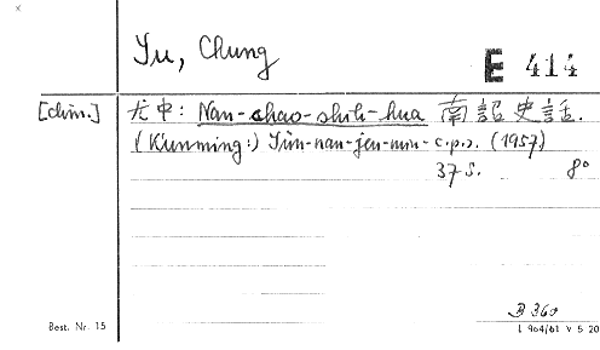 x
Yu, Chung
E 414
[chin.] 尤中: Nan-chao-shih-hua 南詔史話.
(K'unming:) Yün-nan-jen-min-c.p.s. (1957)
37 S. 8°
B 360
Best. Nr. 15 L 904/61 V 5 20